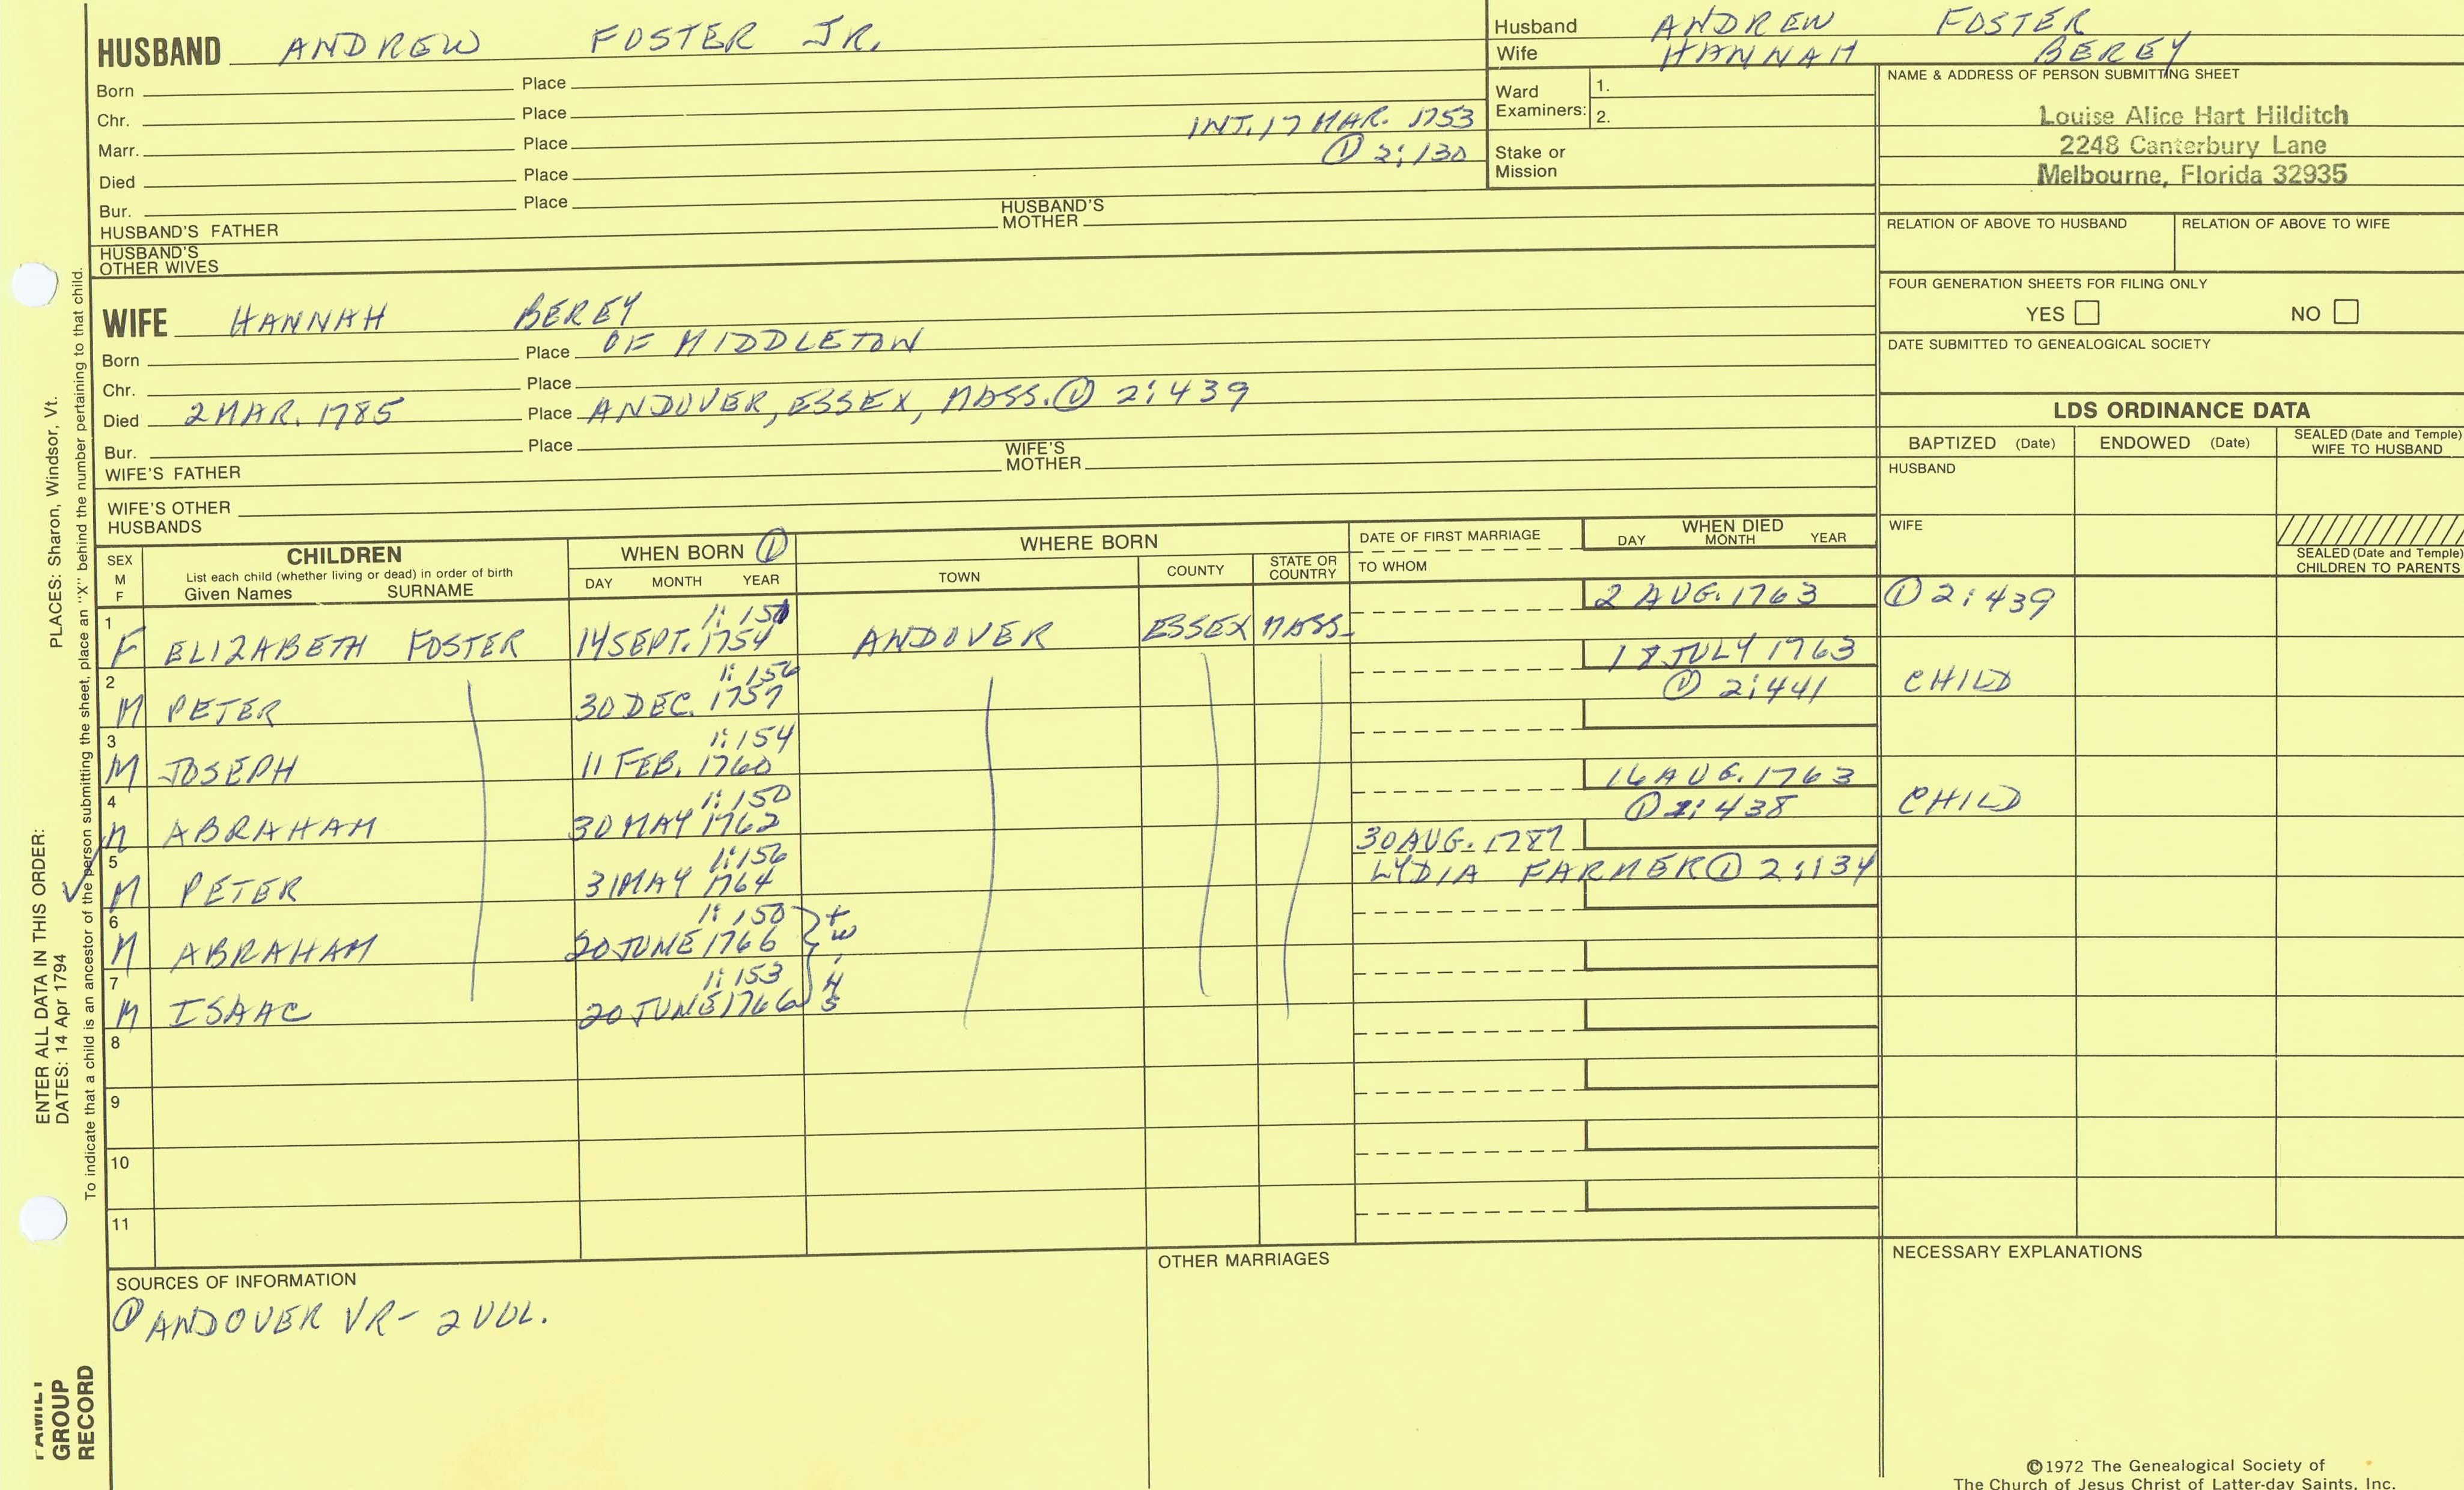 HUSBAND ANDREW FOSTER JR.
Born Place
Chr. Place
INT. 17 MAR. 1753
Marr. Place
① 2:130
Died Place
Bur. Place
HUSBAND'S FATHER HUSBAND'S MOTHER
HUSBAND'S OTHER WIVES
Husband ANDREW FOSTER
Wife HANNAH BEREY
Ward Examiners: 1.
2.
Stake or Mission
NAME & ADDRESS OF PERSON SUBMITTING SHEET
Louise Alice Hart Hilditch
2248 Canterbury Lane
Melbourne, Florida 32935
RELATION OF ABOVE TO HUSBAND RELATION OF ABOVE TO WIFE
FOUR GENERATION SHEETS FOR FILING ONLY
YES NO
DATE SUBMITTED TO GENEALOGICAL SOCIETY
WIFE HANNAH BEREY
Born Place OF MIDDLETON
Chr. Place
Died 2 MAR. 1785 Place ANDOVER, ESSEX, MASS. ① 2:439
Bur. Place
WIFE'S FATHER WIFE'S MOTHER
WIFE'S OTHER HUSBANDS
LDS ORDINANCE DATA
BAPTIZED (Date) ENDOWED (Date) SEALED (Date and Temple) WIFE TO HUSBAND
HUSBAND
WIFE
SEALED (Date and Temple) CHILDREN TO PARENTS
SEX M F
CHILDREN
List each child (whether living or dead) in order of birth
Given Names SURNAME
WHEN BORN ①
DAY MONTH YEAR
WHERE BORN
TOWN COUNTY STATE OR COUNTRY
DATE OF FIRST MARRIAGE
TO WHOM
WHEN DIED
DAY MONTH YEAR
1:151 2 AUG. 1763 ① 2:439
1 F ELIZABETH FOSTER 14 SEPT. 1754 ANDOVER ESSEX MASS.
1:156 18 JULY 1763
2 M PETER 30 DEC. 1757 ① 2:441 CHILD
1:154
3 M JOSEPH 11 FEB. 1760
1:150 16 AUG. 1763
4 M ABRAHAM 30 MAY 1762 ① 2:438 CHILD
1:156 30 AUG. 1787
5 M PETER 31 MAY 1764 LYDIA FARMER ① 2:134
1:150
6 M ABRAHAM 20 JUNE 1766
1:153 twins
7 M ISAAC 20 JUNE 1766
8
9
10
11
SOURCES OF INFORMATION
① ANDOVER VR - 2 VOL.
OTHER MARRIAGES
NECESSARY EXPLANATIONS
©1972 The Genealogical Society of
The Church of Jesus Christ of Latter-day Saints, Inc.
ENTER ALL DATA IN THIS ORDER:
DATES: 14 Apr 1794 PLACES: Sharon, Windsor, Vt.
To indicate that a child is an ancestor of the person submitting the sheet, place an "X" behind the number pertaining to that child.
FAMILY
GROUP
RECORD